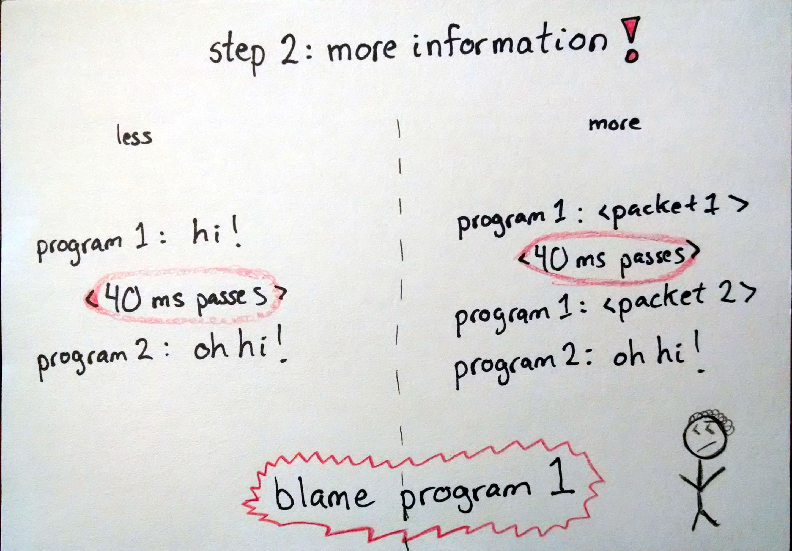 step 2: more information!
less
program 1: hi!
<40 ms passes>
program 2: oh hi!
more
program 1: <packet 1>
<40 ms passes>
program 1: <packet 2>
program 2: oh hi!
blame program 1